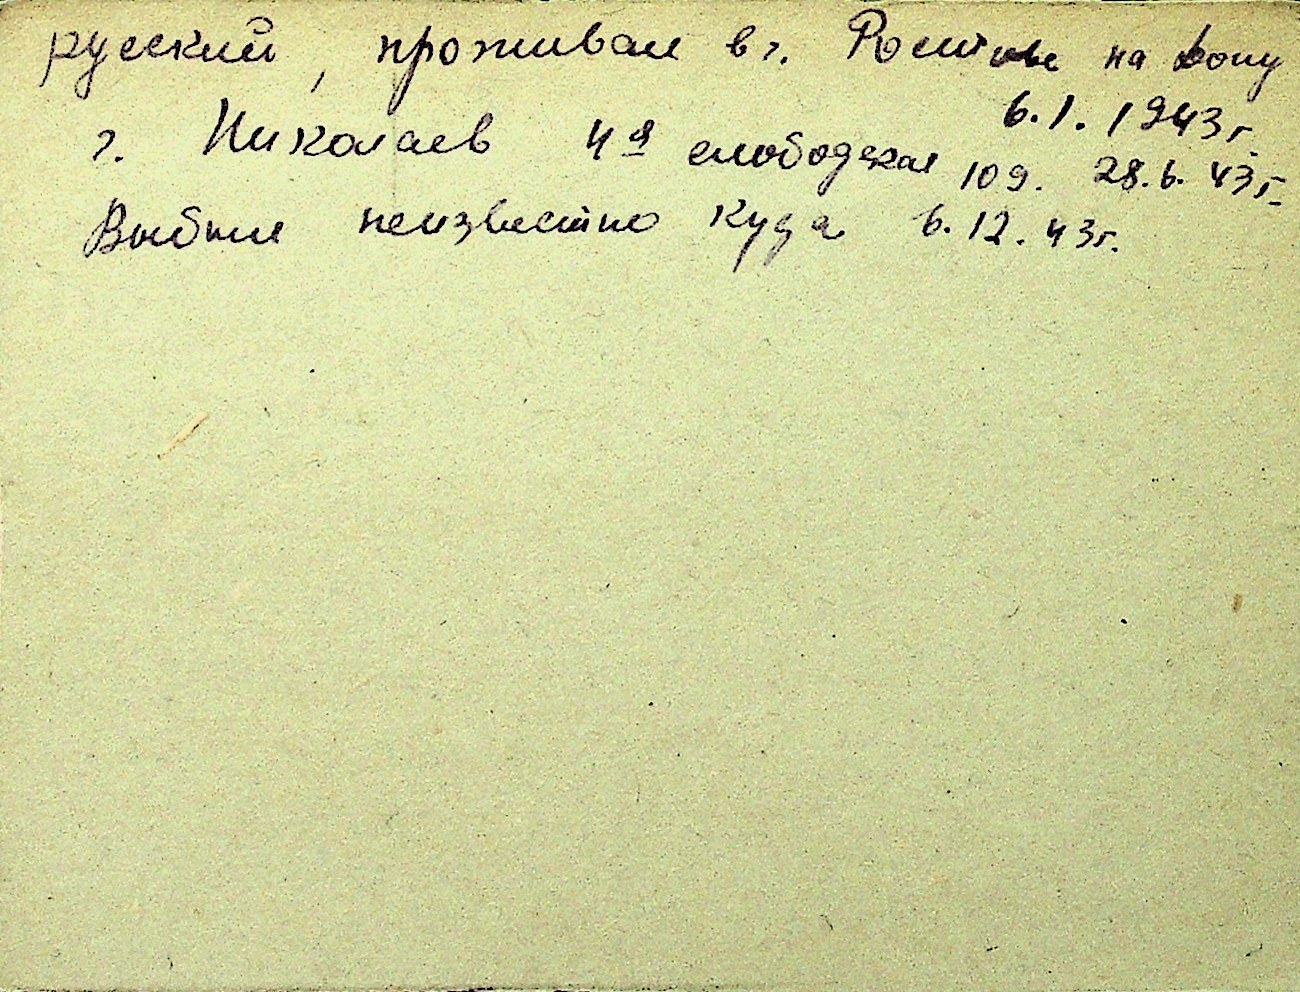 русский, проживал в г. Ростове на Дону
6.1.1943г.
г. Николаев 4я слободская 109. 28.6.43г.
Выбыл неизвестно куда 6.12.43г.